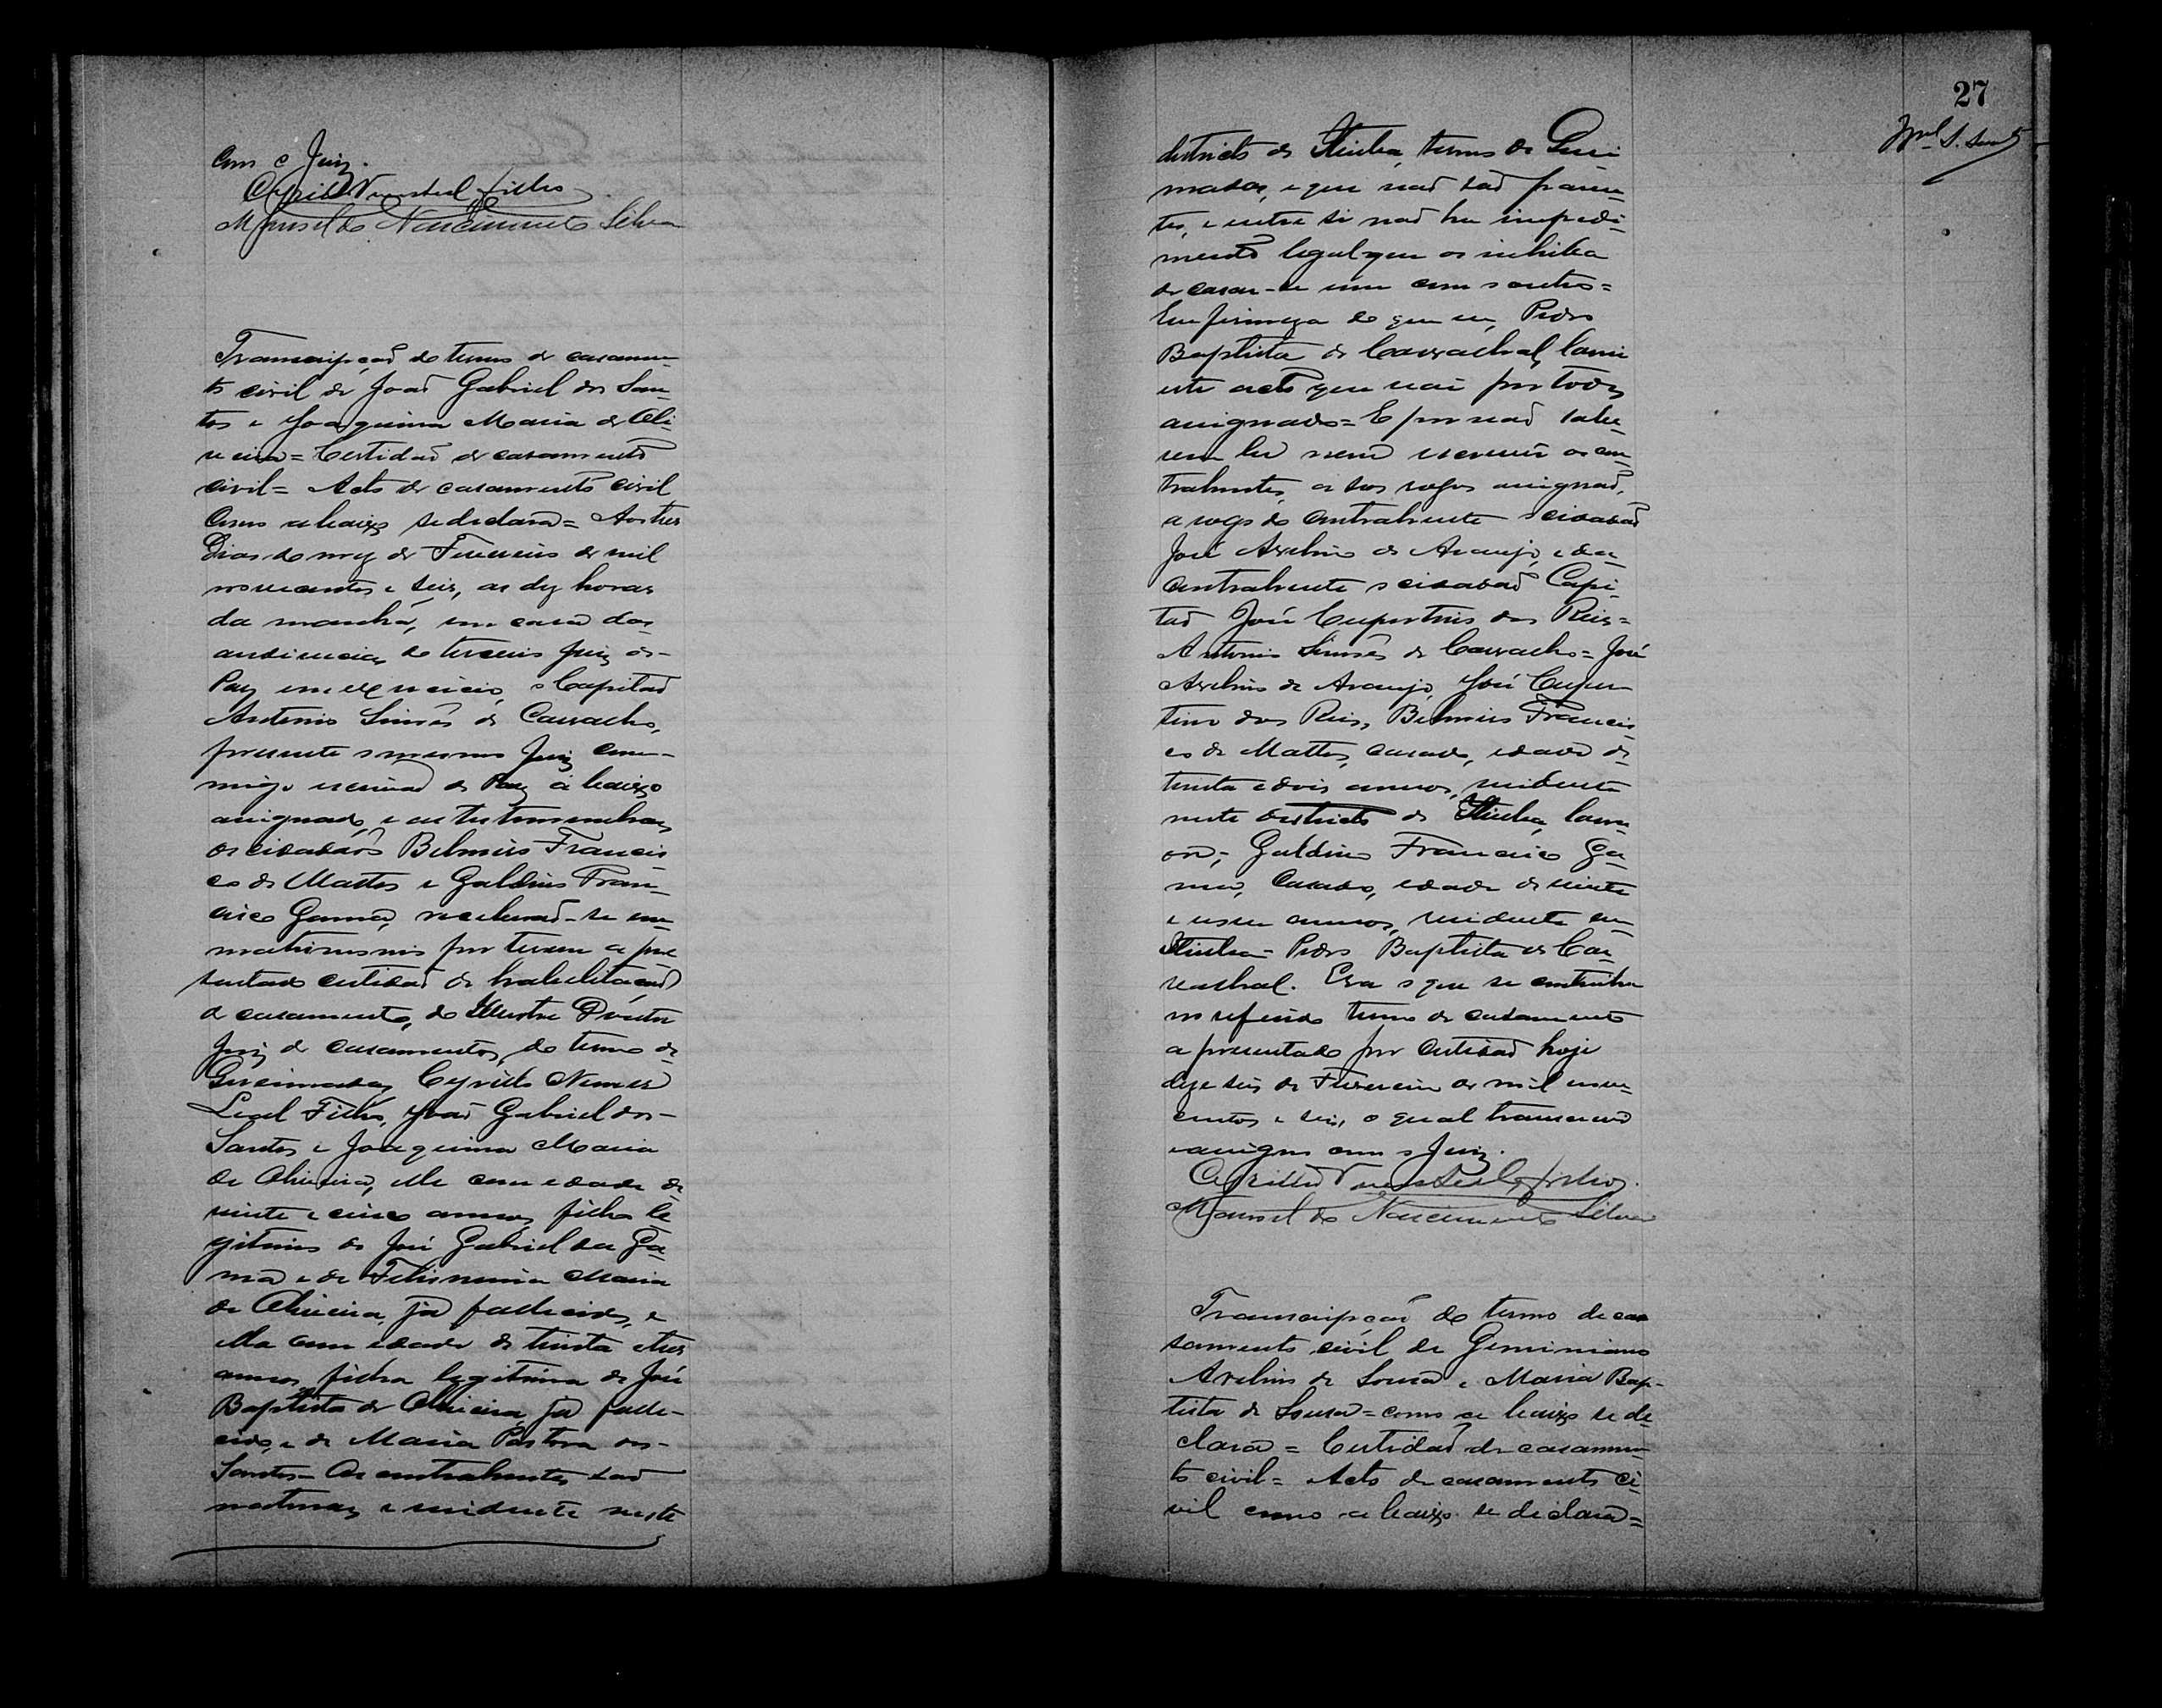 com o Juiz.
Cyrillo Nunes Leal Filho
Manoel do Nascimento Silva
Transcripção do termo de casamen-
to civil de João Gabriel dos San-
tos e Joaquina Maria de Oli-
veira = Certidão de casamento
civil = Acto de casamento civil
como abaixo se declara = Aos tres
Dias do mez de Fevereiro de mil
novecentos e seis, as dez horas
da manhã, em casa das
audiencias do terceiro Juiz de
Paz em exercicio, o Capitão
Antonio Simões de Carvalho,
presente o mesmo Juiz com-
migo escrivão de Paz abaixo
assignado, e as testemunhas
os cidadãos Belmiro Francis
co de Mattos e Galdino Fran-
cisco Gama, receberão-se em
matrimonio por terem apre
sentado certidão de habilitação
de casamento, do Illustre Doutor
Juiz de casamentos, do termo de
Queimadas Cyrillo Nunes
Leal Filho, João Gabriel dos
Santos e Joaquina Maria
de Oliveira, elle com edade de
vinte e cinco annos, filho le
gitimo de José Gabriel da Ga-
ma e de Felismina Maria
de Oliveira, já fallecidos, e
ella com edade de trinta e tres
annos, filha legitima de José
Baptista de Oliveira, já falle-
cido, e de Maria Pastora dos
Santos = Os contrahentes são
naturaes e residente neste
27
districto de Itiuba, termo de Quei
madas, e que não são paren-
tes, e entre si não ha impedi-
mento legal que os inhiba
de casar-se um com o outro =
Em firmeza do que eu, Pedro
Baptista de Carvalhal, lavrei
este acto que vai por todos
assignado = E por não sabe-
rem ler nem escrever os con-
trahentes, a seus rogos assignão,
a rogo do contrahente o cidadão
José Avelino de Araujo, e da
contrahente o cidadão Capi-
tão José Cupertino dos Reis =
Antonio Simões de Carvalho = José
Avelino de Araujo, José Cuper
tino dos Reis, Belmiro Francis
co de Mattos, casado, edade de
trinta e dois annos, residente
neste districto de Itiuba, lavra-
dor; Galdino Francisco Ga-
ma, casado, edade de vinte
e nove annos, residente em
Itiuba = Pedro Baptista de Car-
valhal. Era o que se continha
no referido termo de casamento
apresentado por certidão hoje
dezeseis de Fevereiro de mil nove
centos e seis, o qual transcrevo
e assigno com o Juiz.
Cyrillo Nunes Leal Filho.
Manoel do Nascimento Silva
Transcripção do termo de ca
samento civil de Geminiano
Avelino de Souza e Maria Bap-
tista de Souza = como abaixo se de
clara = Certidão de casamen-
to civil = Acto de casamento ci
vil como abaixo se declara =